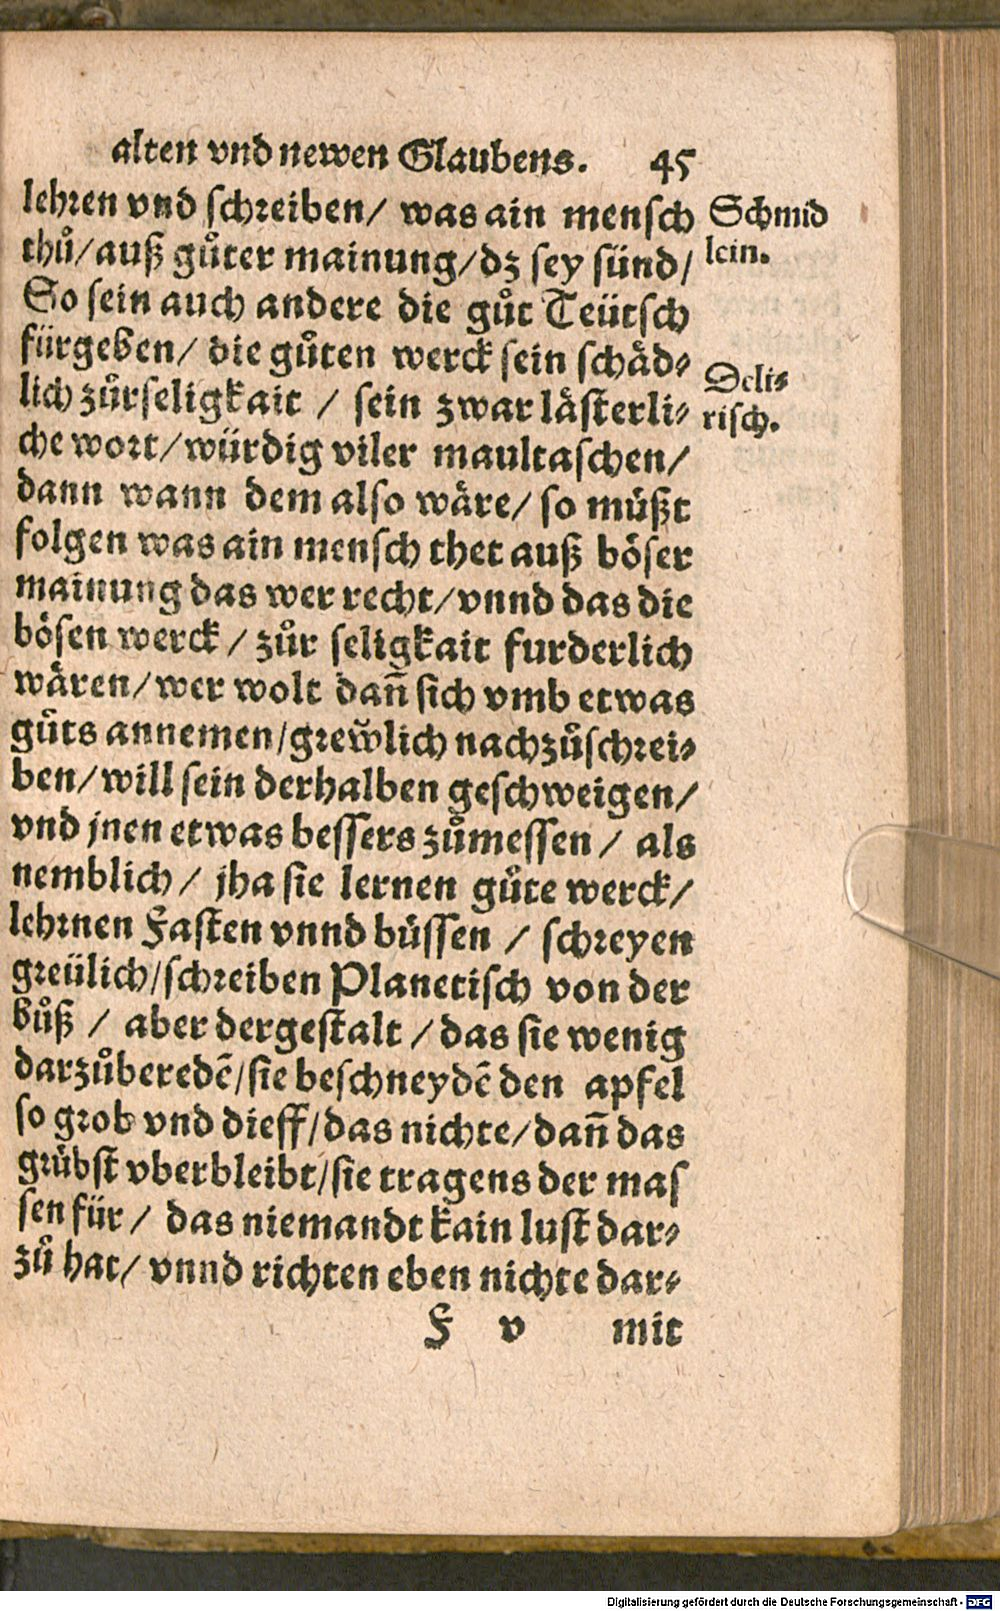 alten vnd newen Glaubens. 45
lehren vnd schreiben/ was ain mensch
thů/auß gůter mainung/dz sey sünd/
So sein auch andere die gůt Teütsch
fürgeben/ die gůten werck sein schäd⸗
lich zůrseligkait / sein zwar lästerli⸗
che wort/würdig viler maultaschen/
dann wann dem also wäre/ so müßt
folgen was ain mensch thet auß böser
mainung das wer recht/vnnd das die
bösen werck / zůr seligkait furderlich
wären/wer wolt dañ sich vmb etwas
gůts annemen/grewlich nachzůschrei⸗
ben/will sein derhalben geschweigen/
vnd jnen etwas bessers zůmessen / als
nemblich / jha sie lernen gůte werck/
lehrnen Fasten vnnd büssen / schreyen
greülich/schreiben Planetisch von der
bůß / aber dergestalt / das sie wenig
darzůberedē/sie beschneydē den apfel
so grob vnd dieff/das nichte/dañ das
grübst vberbleibt/sie tragens der mas
sen für / das niemandt kain lust dar⸗
zů hat/ vnnd richten eben nichte dar⸗
F v mit
Schmid
lein.
Deli⸗
risch.
Digitalisierung gefördert durch die Deutsche Forschungsgemeinschaft - DFG